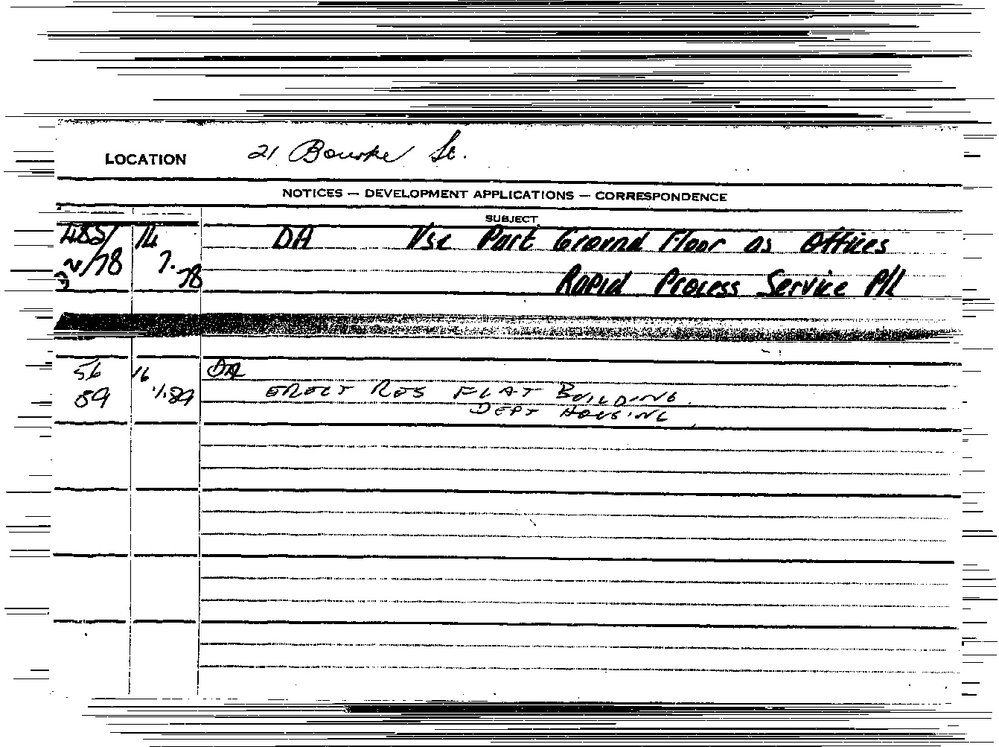 LOCATION 21 Bourke St.
NOTICES — DEVELOPMENT APPLICATIONS — CORRESPONDENCE
SUBJECT
485/ 14 DA Use Part Ground Floor as Offices
/78 7. 78 Rapid Process Service P/L
56 16 DA
89 1/.89 ERECT RES FLAT BUILDING.
DEPT HOUSING.